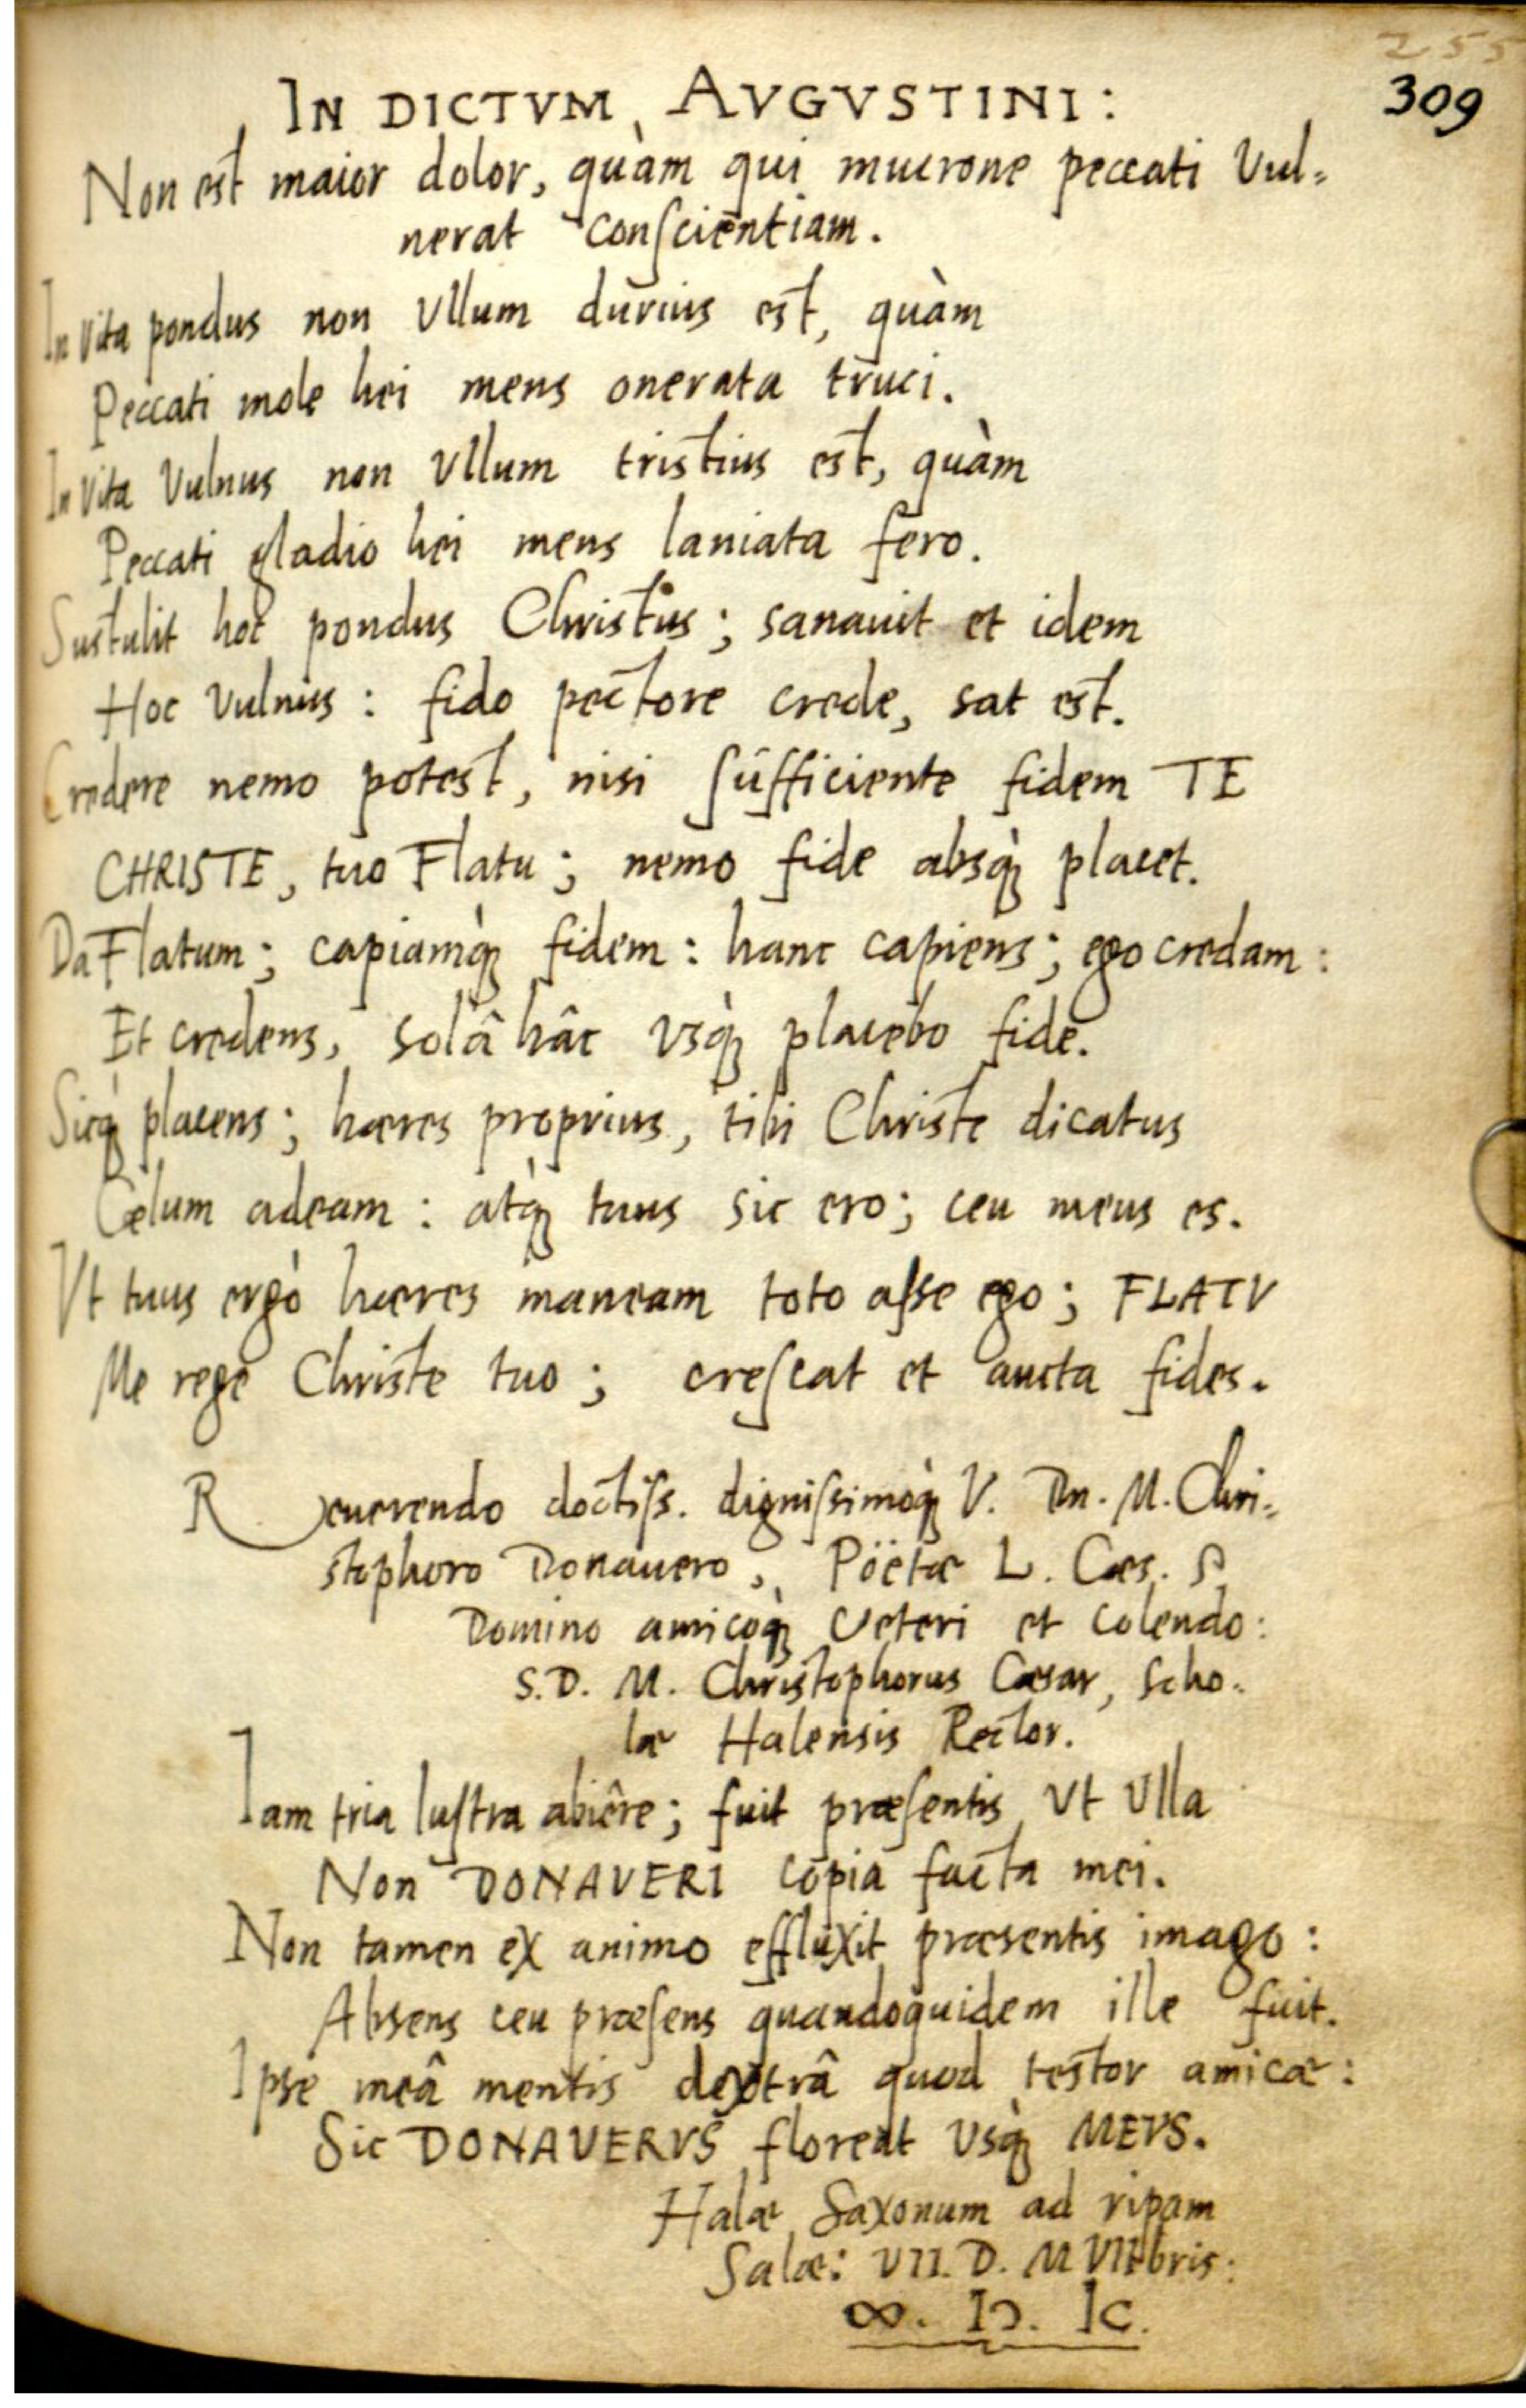 255
309
IN DICTVM AVGVSTINI:
Non est maior dolor, quàm qui mucrone peccati Vul=
nerat conſcientiam.
In vita pondus non Vllum durius est, quàm
Peccati mole hei mens onerata truci.
In Vita Vulnus non Vllum tristius est, quàm
Peccati gladio hei mens laniata fero.
Sustulit hoc pondus Christus; sanauit et idem
Hoc Vulnus: fido pectore crede, sat est.
Credere nemo potest, nisi ſufficiente fidem TE
CHRISTE, tuo Flatu; nemo fide absq̀ꝫ placet.
Da Flatum; capiamq̀ꝫ fidem: hanc capiens; ego credam:
Et credens, solâ hâc vsq̀ꝫ placebo fide.
Sicq̀ꝫ placens; hæres proprius, tibi Christe dicatus
Cælum adeam: atq̀ꝫ tuus sic ero; ceu meus es.
Vt tuus ergò hæres maneam toto aſse ego; FLATV
Me rege Christe tuo; creſcat et aucta fides.
Reuerendo doctiſs. digniſsimoq̀ꝫ V. Dn. M. Chri=
stophoro Donauero, Pöetæ L. Cæs. P.
Domino amicoq̀ꝫ Veteri et colendo:
S.D. M. Christophorus Cæsar, Scho=
læ Halensis Rector.
Iam tria luſtra abiêre; fuit præſentis Vt Vlla
Non DONAVERI copia facta mei.
Non tamen ex animo effluxit præsentis imago:
Absens ceu præſens quandoquidem ille fuit.
Ipse meâ mentis dextrâ quod testor amicæ:
Sic DONAVERVS floreat Vsq̀ꝫ MEVS.
Halæ Saxonum ad ripam
Salæ: VII. D. M VIIbris:
∞. IↃ. IC.